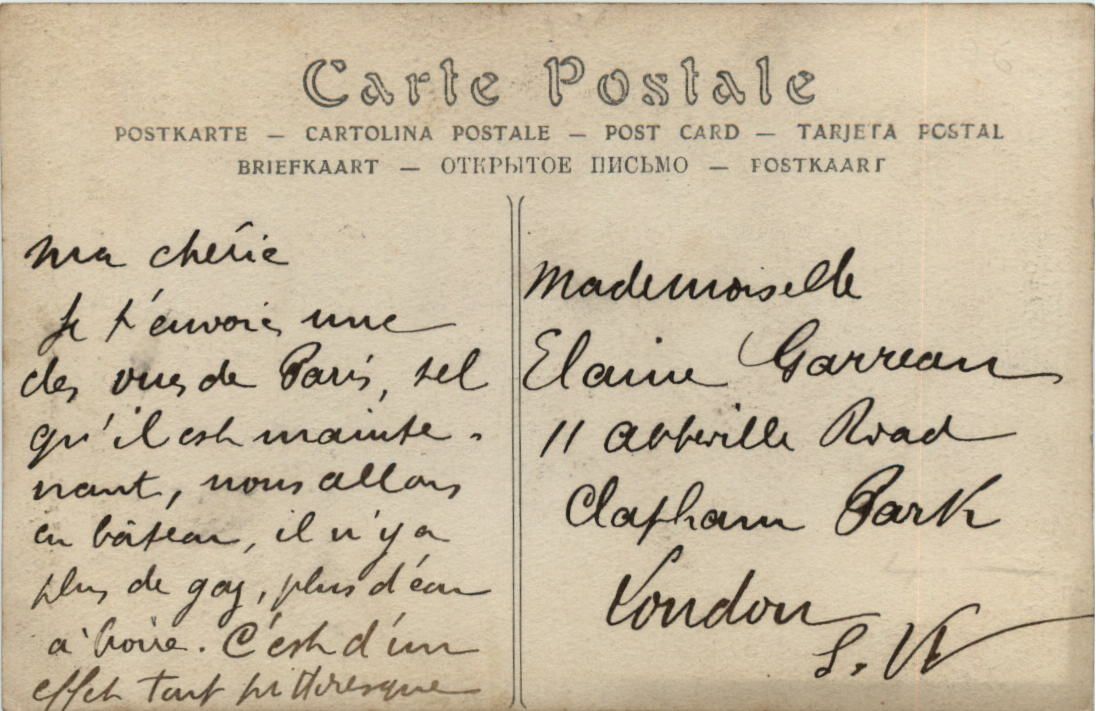 Carte Postale
POSTKARTE — CARTOLINA POSTALE — POST CARD — TARJETA POSTAL
BRIEFKAART — ОТКРЫТОЕ ПИСЬМО — POSTKAART
Ma chérie
Je t'envoie une
des vues de Paris, tel
qu'il est mainte-
nant, nous allons
en bâteau, il n'y a
plus de gaz, plus d'eau
à boire. C'est d'un
effet tout pittoresque
Mademoiselle
Elaine Garreau
11 Abbeville Road
Clapham Park
London
S. W